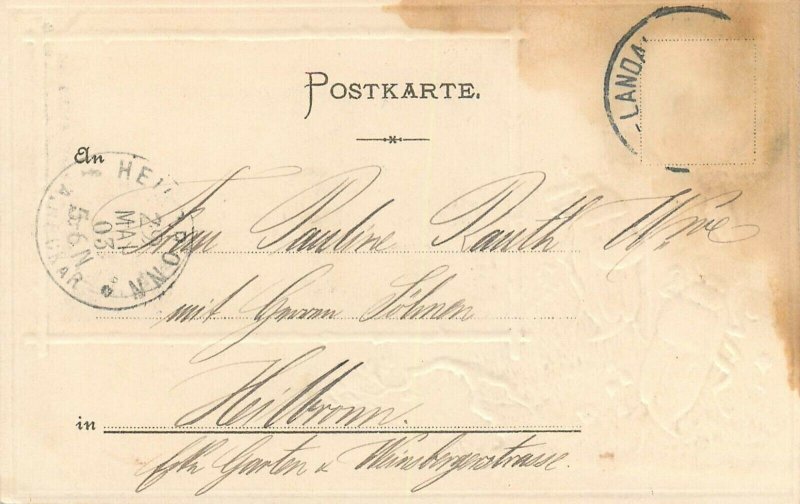 POSTKARTE.
LANDA
An
HEILBRONN
29
MAI
03
5-6N
Frau Pauline Rauth Wwe
mit Herren Söhnen
in Heilbronn.
Ecke Garten u Weinsbergerstrasse.